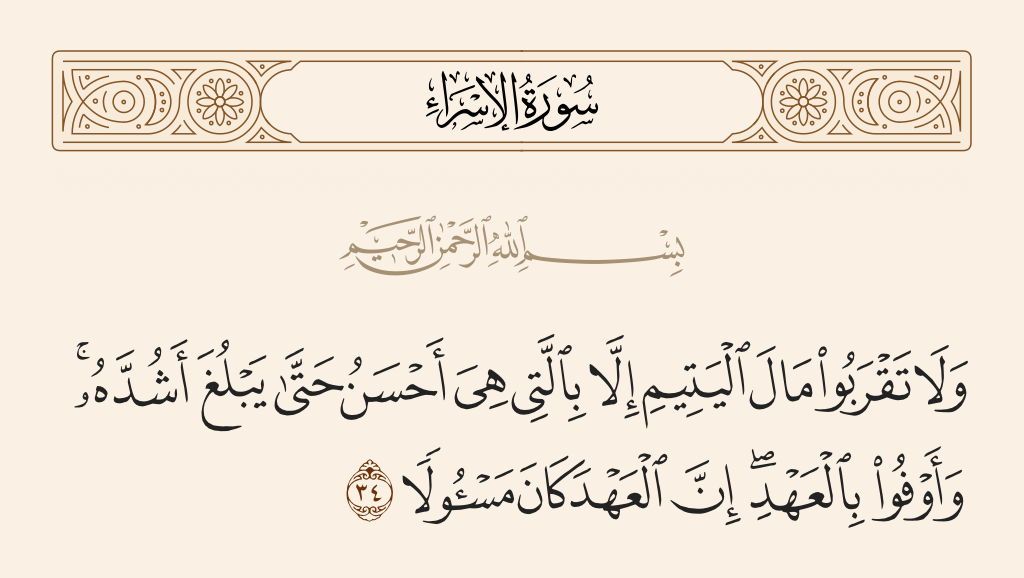 سُورَةُ الإِسْرَاءِ
بِسْمِ ٱللَّهِ ٱلرَّحْمَٰنِ ٱلرَّحِيمِ
وَلَا تَقْرَبُوا۟ مَالَ ٱلْيَتِيمِ إِلَّا بِٱلَّتِى هِىَ أَحْسَنُ حَتَّىٰ يَبْلُغَ أَشُدَّهُۥ ۚ
وَأَوْفُوا۟ بِٱلْعَهْدِ ۖ إِنَّ ٱلْعَهْدَ كَانَ مَسْـُٔولًا ٣٤